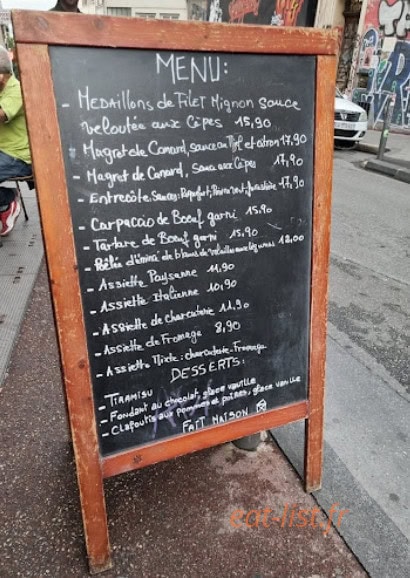 MENU:
- MEDAILLONS de FILET MIGNON SAUCE
veloutée aux CÈPES 15,90
- Magret de Canard, sauce au Miel et citron 17,90
- Magret de Canard, Sauce aux Cèpes 17,90
- Entrecôte, Sauces: Roquefort, Poivre vert, 17,90
- Carpaccio de Boeuf garni 15.90
- Tartare de Boeuf garni 15.90
- Poêlée d'émincé de blancs de volaille aux légumes 12,00
- Assiette Paysanne 11.90
- Assiette Italienne 10,90
- Assiette de Charcuterie 11.90
- Assiette de Fromage 8,90
- Assiette Mixte: charcuterie-Fromage
DESSERTS:
- TIRAMISU
- Fondant au chocolat, glace vanille
- Clafoutis aux pommes et poires, glace vanille
FAIT MAISON
eat-list.fr